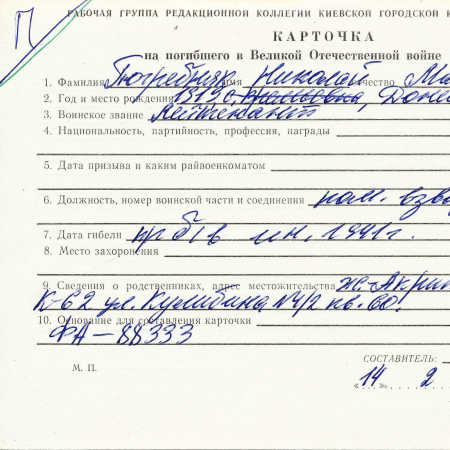 П
РАБОЧАЯ ГРУППА РЕДАКЦИОННОЙ КОЛЛЕГИИ КИЕВСКОЙ ГОРОДСКОЙ К
КАРТОЧКА
на погибшего в Великой Отечественной войне
1. Фамилия Погребняк имя Николай отчество Ма
2. Год и место рождения 1919 с. Доне
3. Воинское звание Лейтенант
4. Национальность, партийность, профессия, награды
5. Дата призыва и каким райвоенкоматом
6. Должность, номер воинской части и соединения ком. взво
7. Дата гибели пр б/в 1941г.
8. Место захоронения
9. Сведения о родственниках, адрес местожительства ж-
К-62 ул. Кулибина №4/2 кв. 60.
10. Основание для составления карточки
ФА-88333
СОСТАВИТЕЛЬ:
М. П.
«14 2